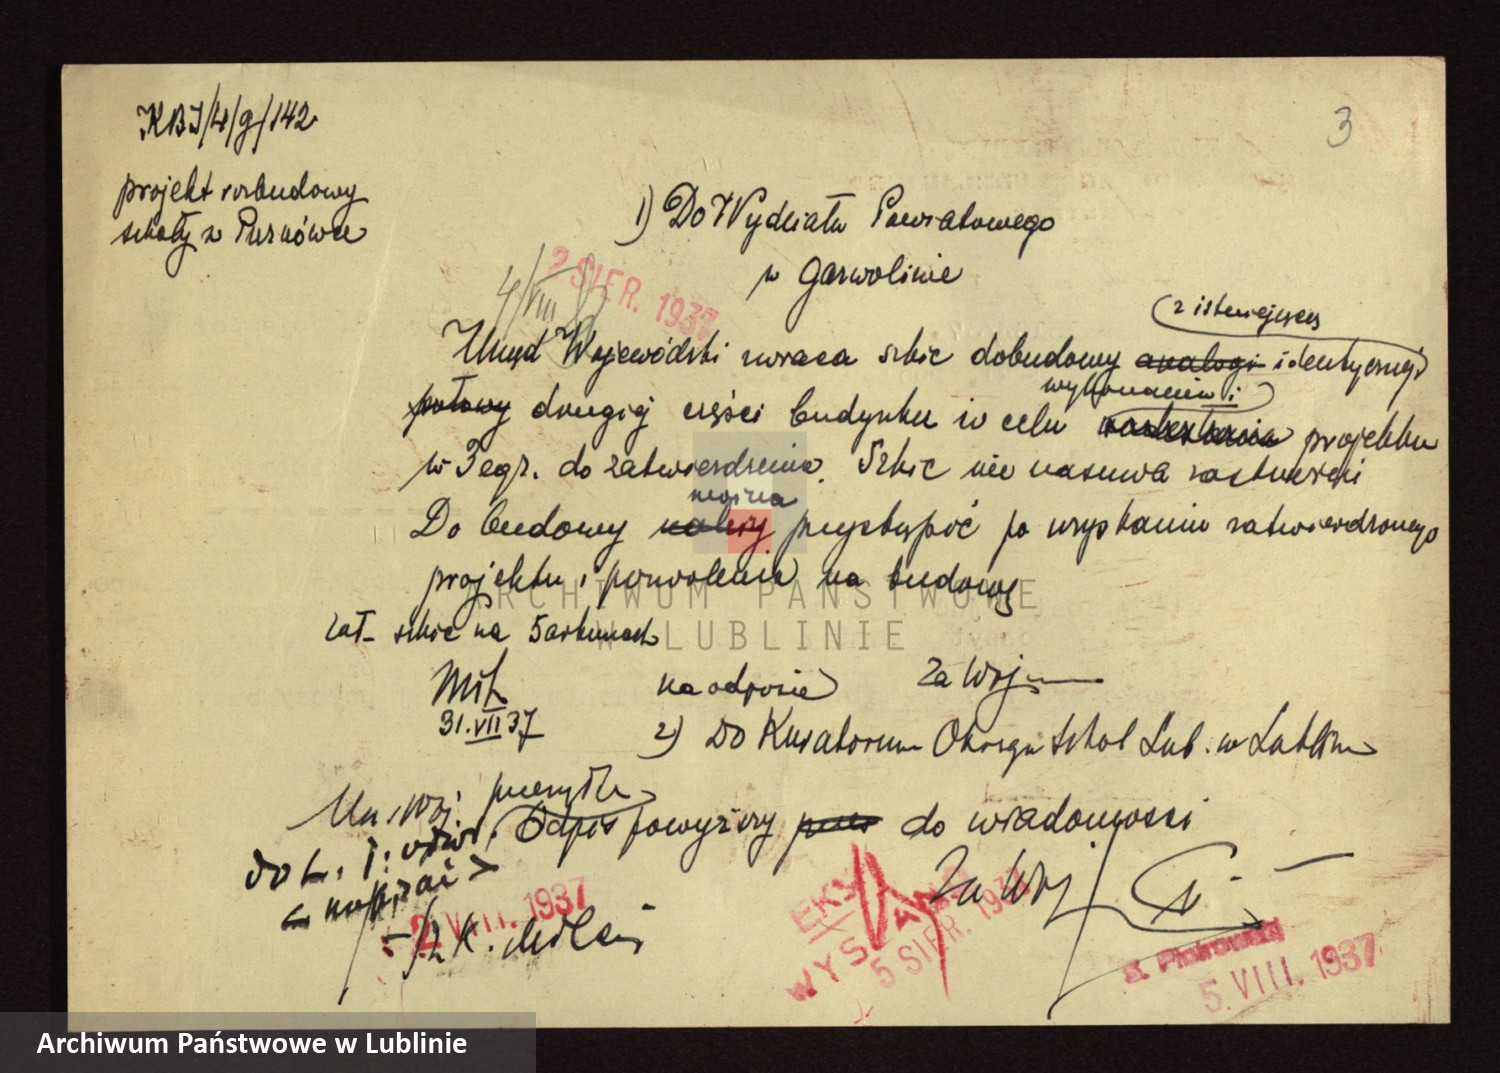 3
KBI/4/g/142
projekt rozbudowy
szkoły w Purnówce
1) Do Wydziału Powiatowego
w Garwolinie
2 SIER. 1937
4/VIII
z istniejącej
Urząd Wojewódzki zwraca szkic dobudowy analogi identycznej
wykonania i
połowy drugiej części budynku w celu projektu
w 3 egz. do zatwierdzenia. Szkic nie nasuwa zastrzeżeń
można
Do budowy należy przystąpić po uzyskaniu zatwierdzonego
projektu i pozwolenia na budowę
Zał. szkic na 5 arkuszach
31.VII 37
na odwrocie
Za Woj
2) Do Kuratorium Okręgu Szkol. Lub. w Lublinie
Urz. Woj. przesyła
Odpis powyższy do wiadomości
Za Woj
2 VIII. 1937
WYSŁANO
5 SIER. 1937
S. Piotrowski
5. VIII. 1937
ARCHIWUM PAŃSTWOWE
W LUBLINIE
Archiwum Państwowe w Lublinie